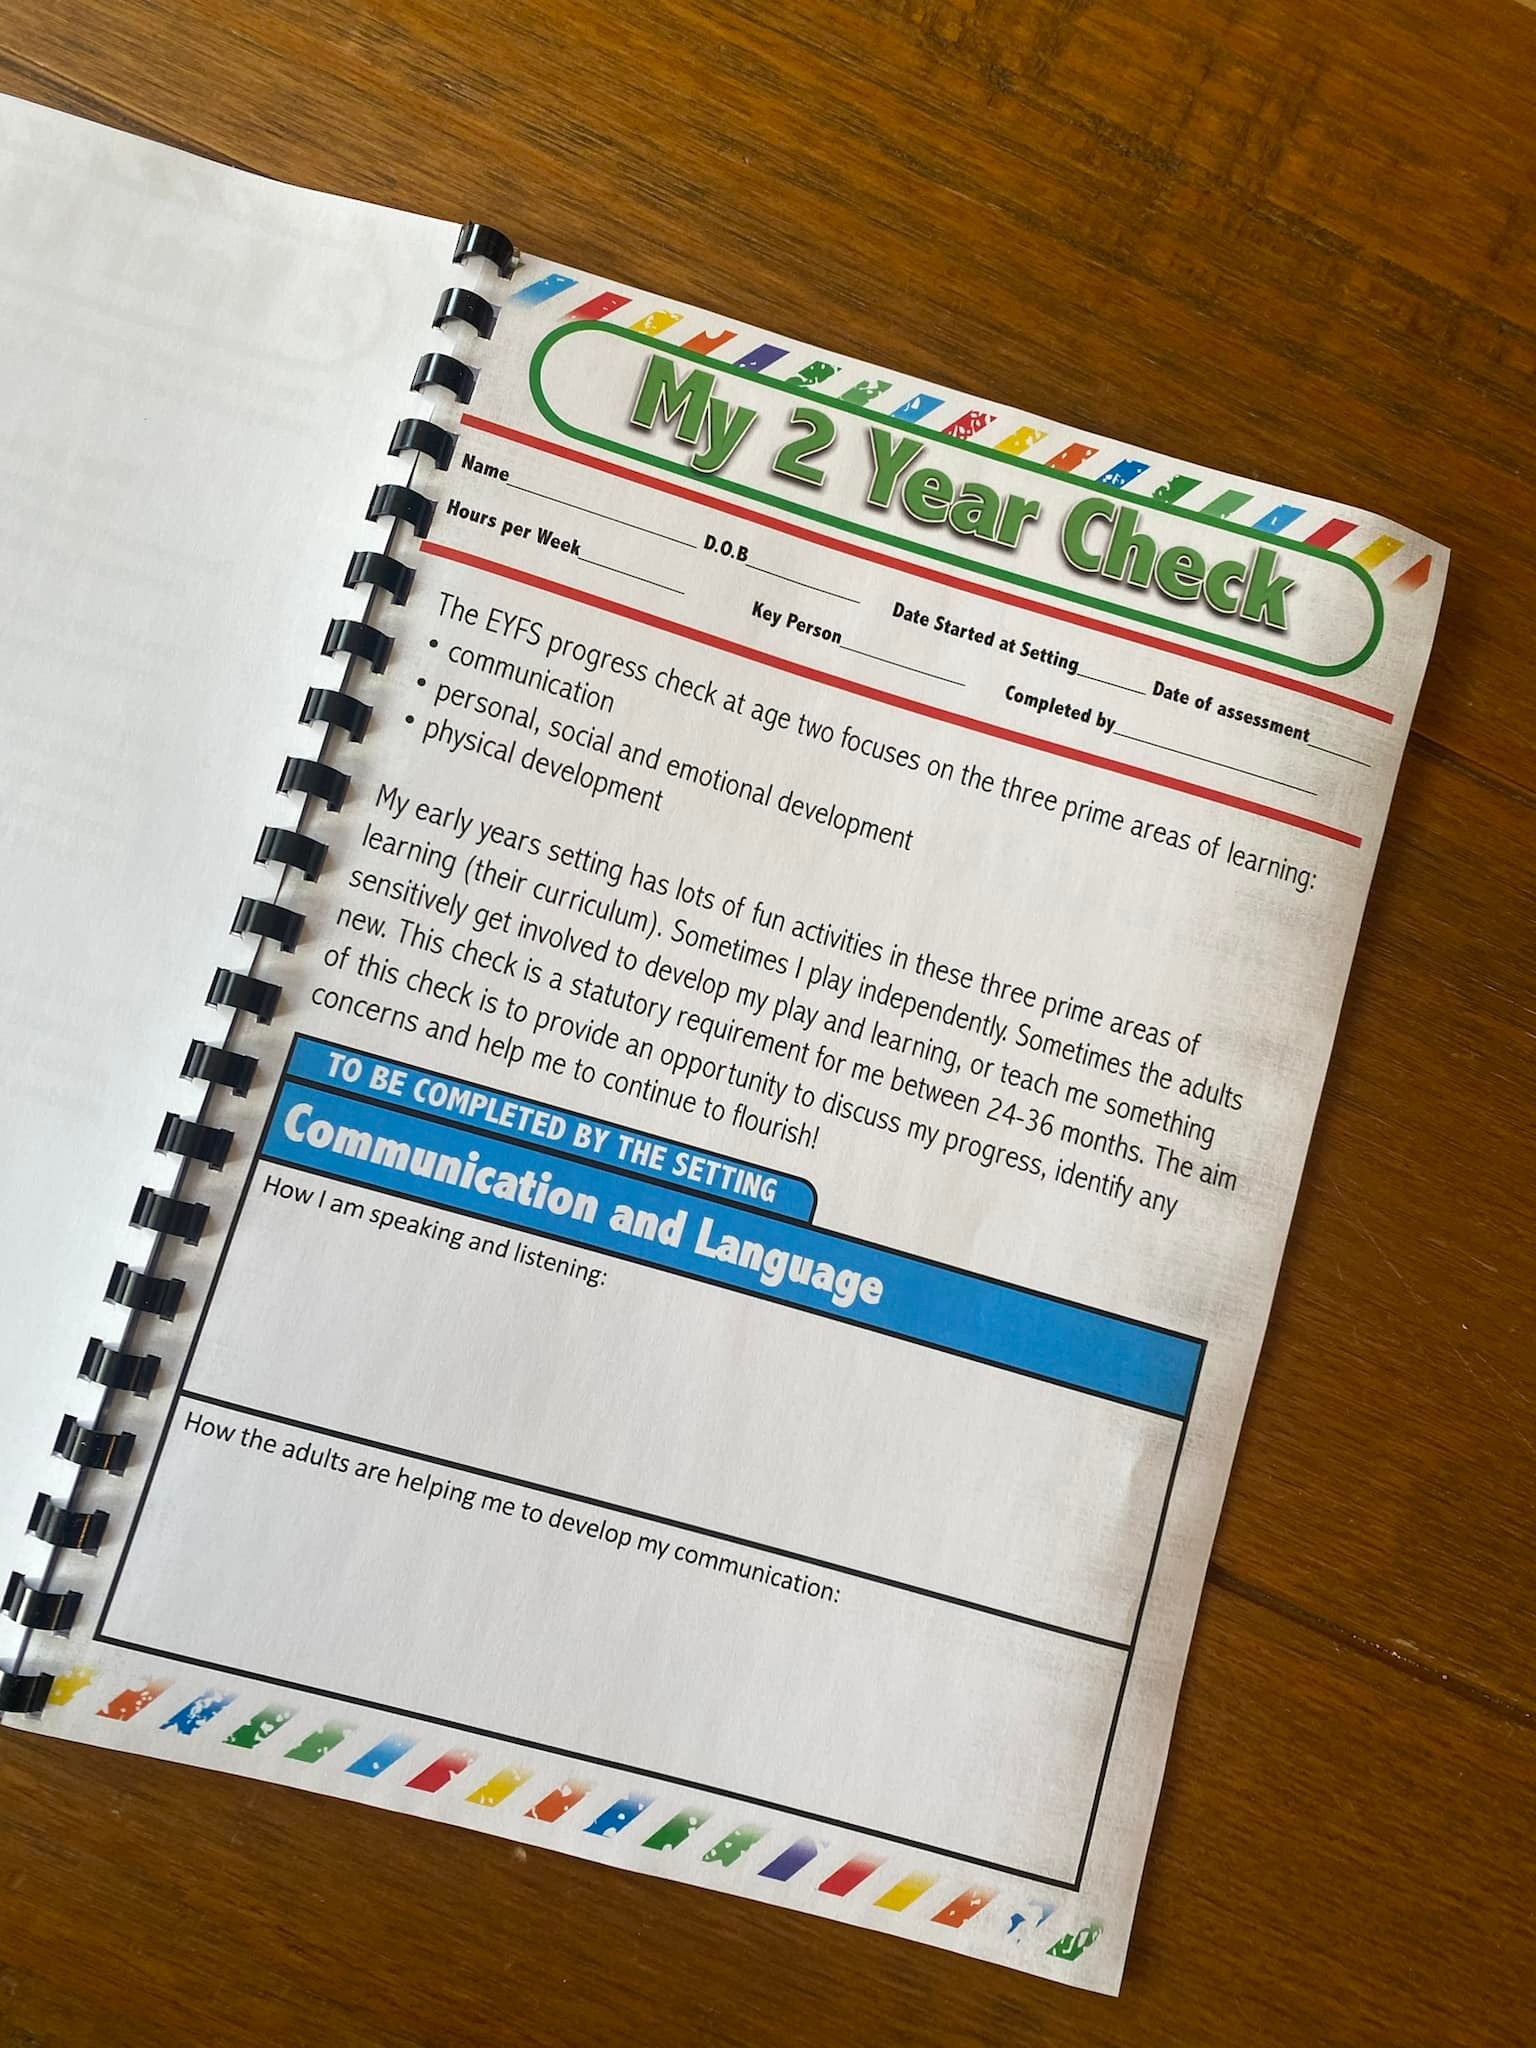 My 2 Year Check
Name D.O.B Date Started at Setting Date of assessment
Hours per Week Key Person Completed by
The EYFS progress check at age two focuses on the three prime areas of learning:
• communication
• personal, social and emotional development
• physical development
My early years setting has lots of fun activities in these three prime areas of
learning (their curriculum). Sometimes I play independently. Sometimes the adults
sensitively get involved to develop my play and learning, or teach me something
new. This check is a statutory requirement for me between 24-36 months. The aim
of this check is to provide an opportunity to discuss my progress, identify any
concerns and help me to continue to flourish!
TO BE COMPLETED BY THE SETTING
Communication and Language
How I am speaking and listening:
How the adults are helping me to develop my communication: